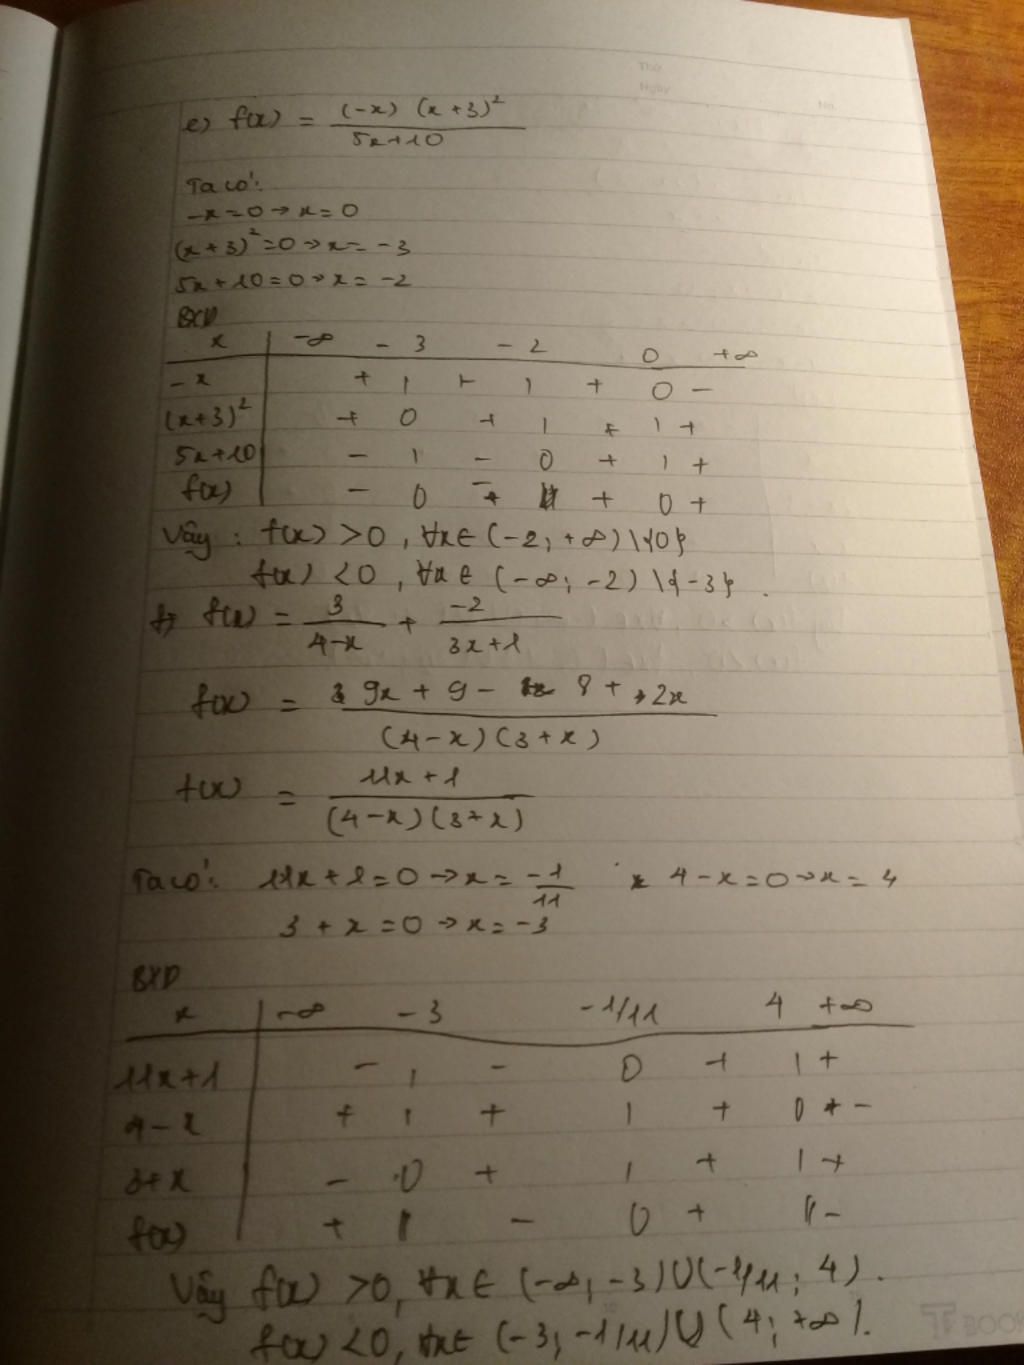 Thứ
Ngày
No.
e) f(x) = (-x) (x+3)² / 5x+10
Ta có:
-x=0 → x=0
(x+3)²=0 → x= -3
5x+10=0 → x= -2
BXD
x | -∞ -3 -2 0 +∞
-x | + | + | + 0 -
(x+3)² | + 0 + | + | +
5x+10 | - | - 0 + | +
f(x) | - 0 || + 0 +
Vậy : f(x) >0 , ∀x∈ (-2; +∞) \{0}
f(x) <0 , ∀x∈ (-∞; -2) \{-3}.
f) f(x) = 3 / 4-x + -2 / 3x+1
f(x) = 9x + 9 - 8 + 2x / (4-x)(3+x)
f(x) = 11x+1 / (4-x)(3+x)
Ta có: 11x+1=0 → x= -1/11 4-x=0 → x=4
3+x=0 → x=-3
BXD
x | -∞ -3 -1/11 4 +∞
11x+1 | - | - 0 + | +
4-x | + | + | + 0 -
3+x | - 0 + | + | +
f(x) | + || - 0 + || -
Vậy f(x) >0, ∀x∈ (-∞; -3)∪(-1/11; 4).
f(x) <0, ∀x∈ (-3; -1/11)∪(4; +∞).